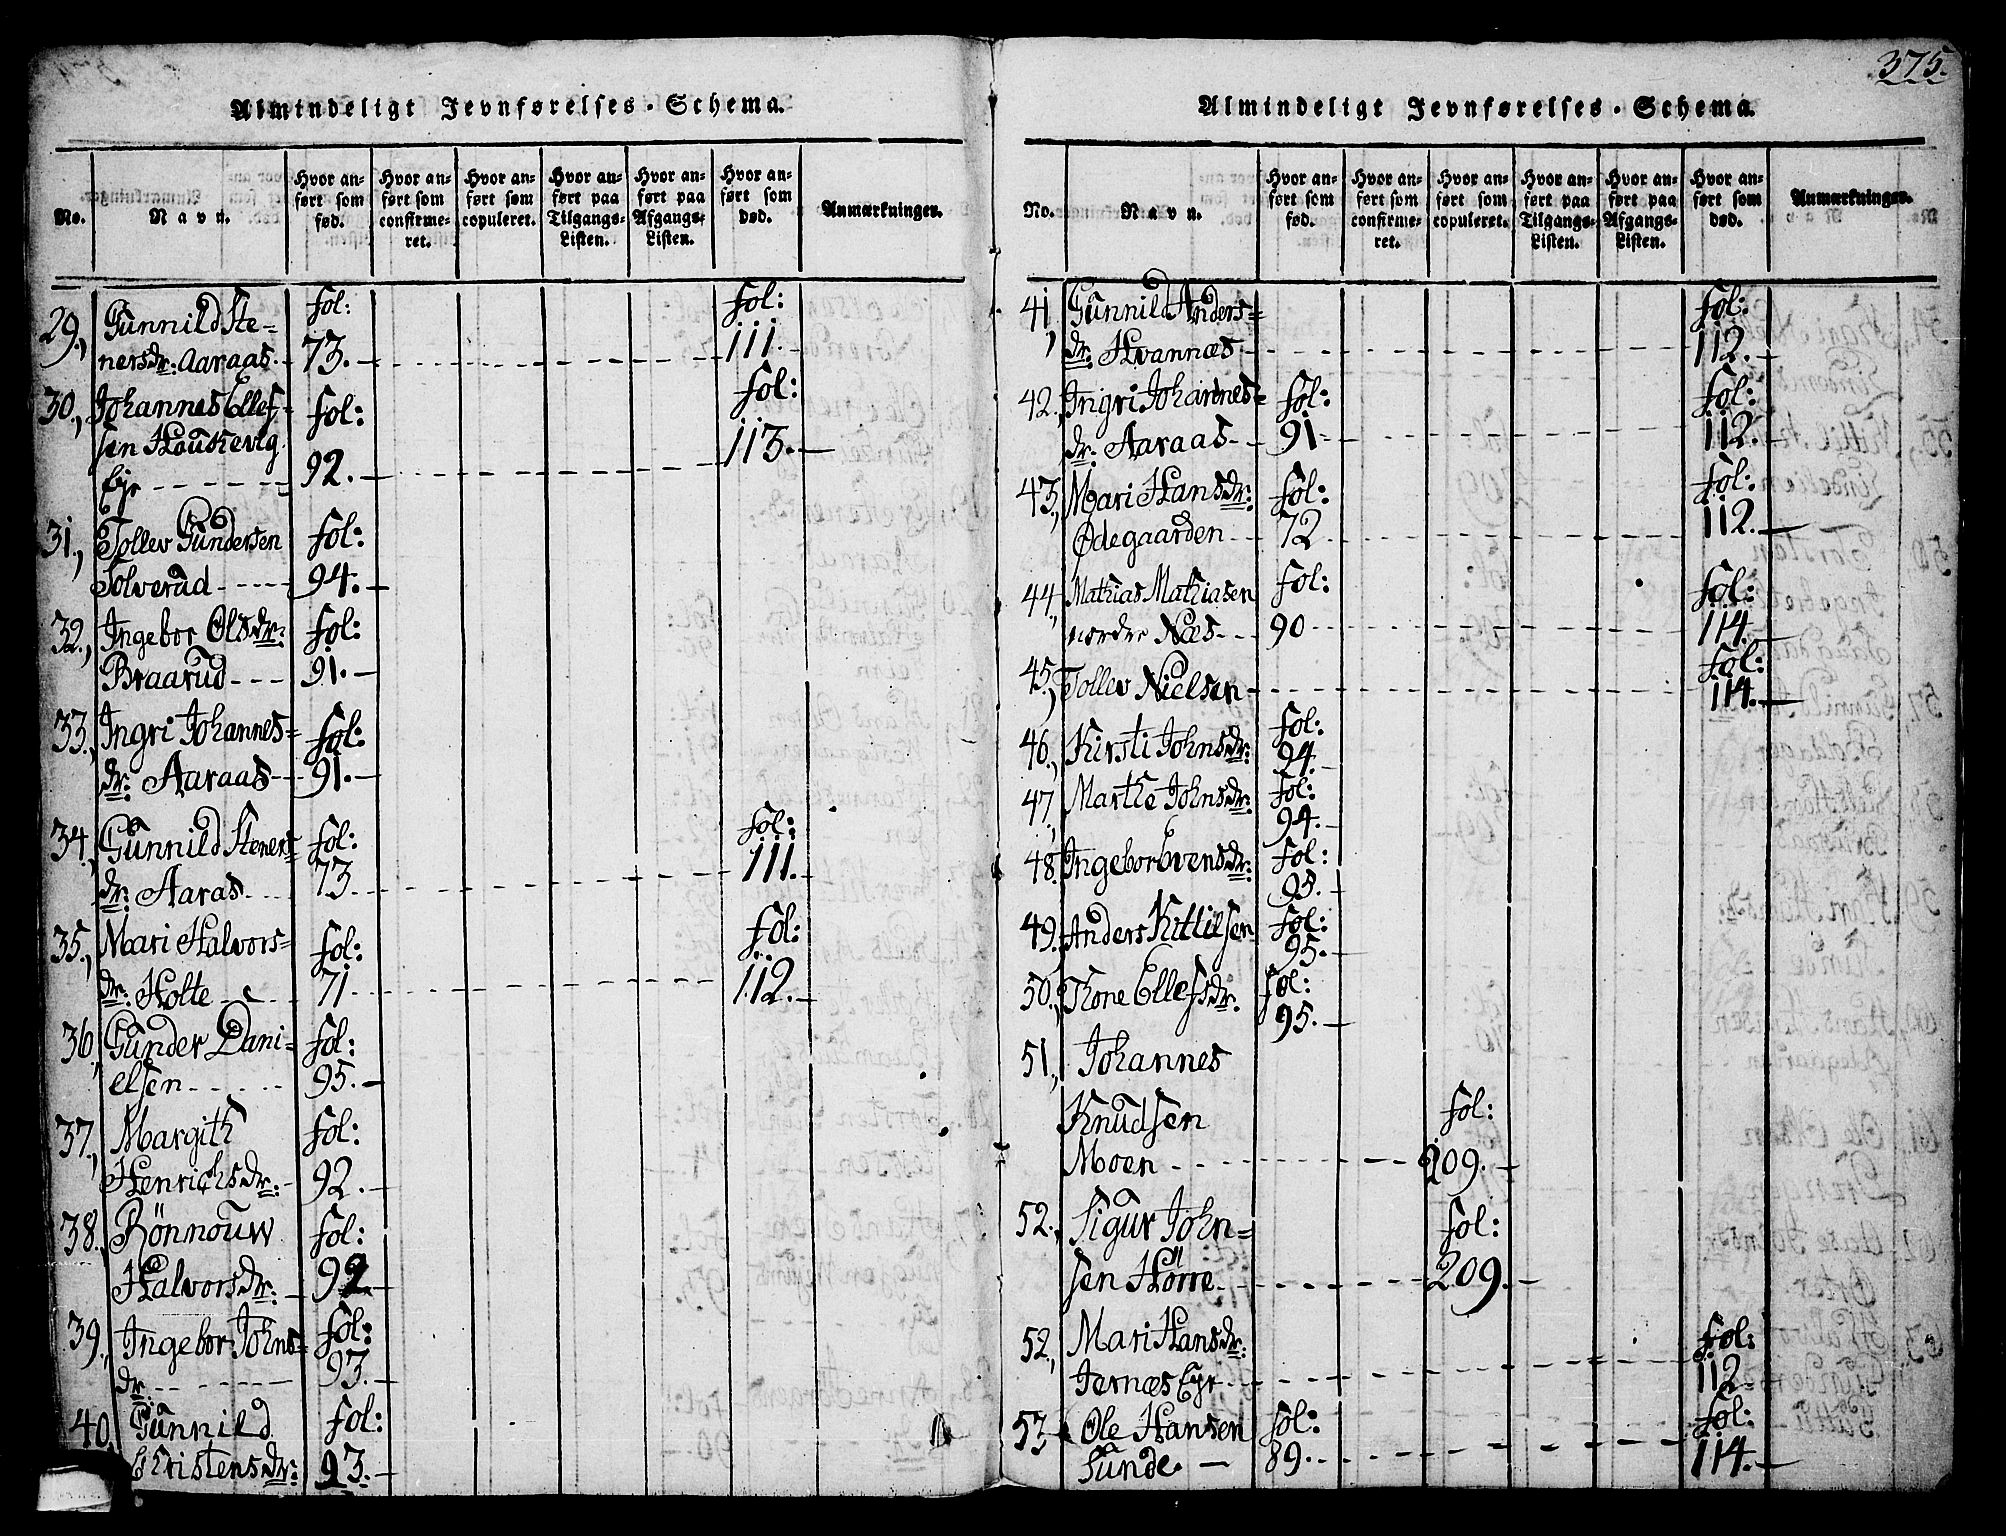 Almindeligt Jevnførelses-Schema.
No.
Navn.
Hvor anført som fød.
Hvor anført som confirmeret.
Hvor anført som copuleret.
Hvor anført paa Tilgangs-Listen.
Hvor anført paa Afgangs-Listen.
Hvor anført som død.
Anmærkninger.
29., Gunnild Ste= Fol: Fol:
nersdr: Aaraas 73. 111.
30., Johannes Ellef= Fol: Fol:
sen 113.
Eje 92.
31., Tollev Gundersen Fol:
Solverud 94.
32., Ingebor Olsdr: Fol:
Braarud 91.
33., Ingri Johannes= Fol:
dr: Aaraas 91.
34., Gunnild Steners= Fol: Fol:
dr: Aaras 73. 111.
35., Mari Halvors= Fol: Fol:
dr: Holte 71 112.
36., Gunder Dani= Fol:
elsen 95.
37., Margith Fol:
Henrichsdr: 92.
38., Rönnouw Fol:
Halvorsdr: 92.
39., Ingebor Johns= Fol:
dr: 93.
40. Gunnild Fol:
Christensdr: 93.
375.
Almindeligt Jevnførelses-Schema.
No.
Navn.
Hvor anført som fød.
Hvor anført som confirmeret.
Hvor anført som copuleret.
Hvor anført paa Tilgangs-Listen.
Hvor anført paa Afgangs-Listen.
Hvor anført som død.
Anmærkninger.
41, Gunnild Anders= Fol:
dr: Hvannæs 112.
42., Ingri Johannes= Fol: Fol:
dr: Aaraas 91 112.
43., Mari Hansdr: Fol: Fol:
Ødegaarden 72 112.
44., Mathias Mathiasen Fol: Fol:
nordre Næs 90 114.
45., Tollev Nielsen Fol: 114.
46., Kirsti Johnsdr: Fol: 94.
47., Marthe Johnsdr: Fol: 94.
48. Ingebor Evensdr: Fol: 95.
49. Anders Kittilsen Fol: 95.
50., Thone Ellefsdr: Fol: 95.
51., Johannes
Knudsen Fol:
Moen 209.
52., Sigur John= Fol:
sen Hörre 209.
52., Mari Hansdr: Fol:
Jernæs Eje 112
53 Ole Hansen Fol: Fol:
Sunde 89. 114.